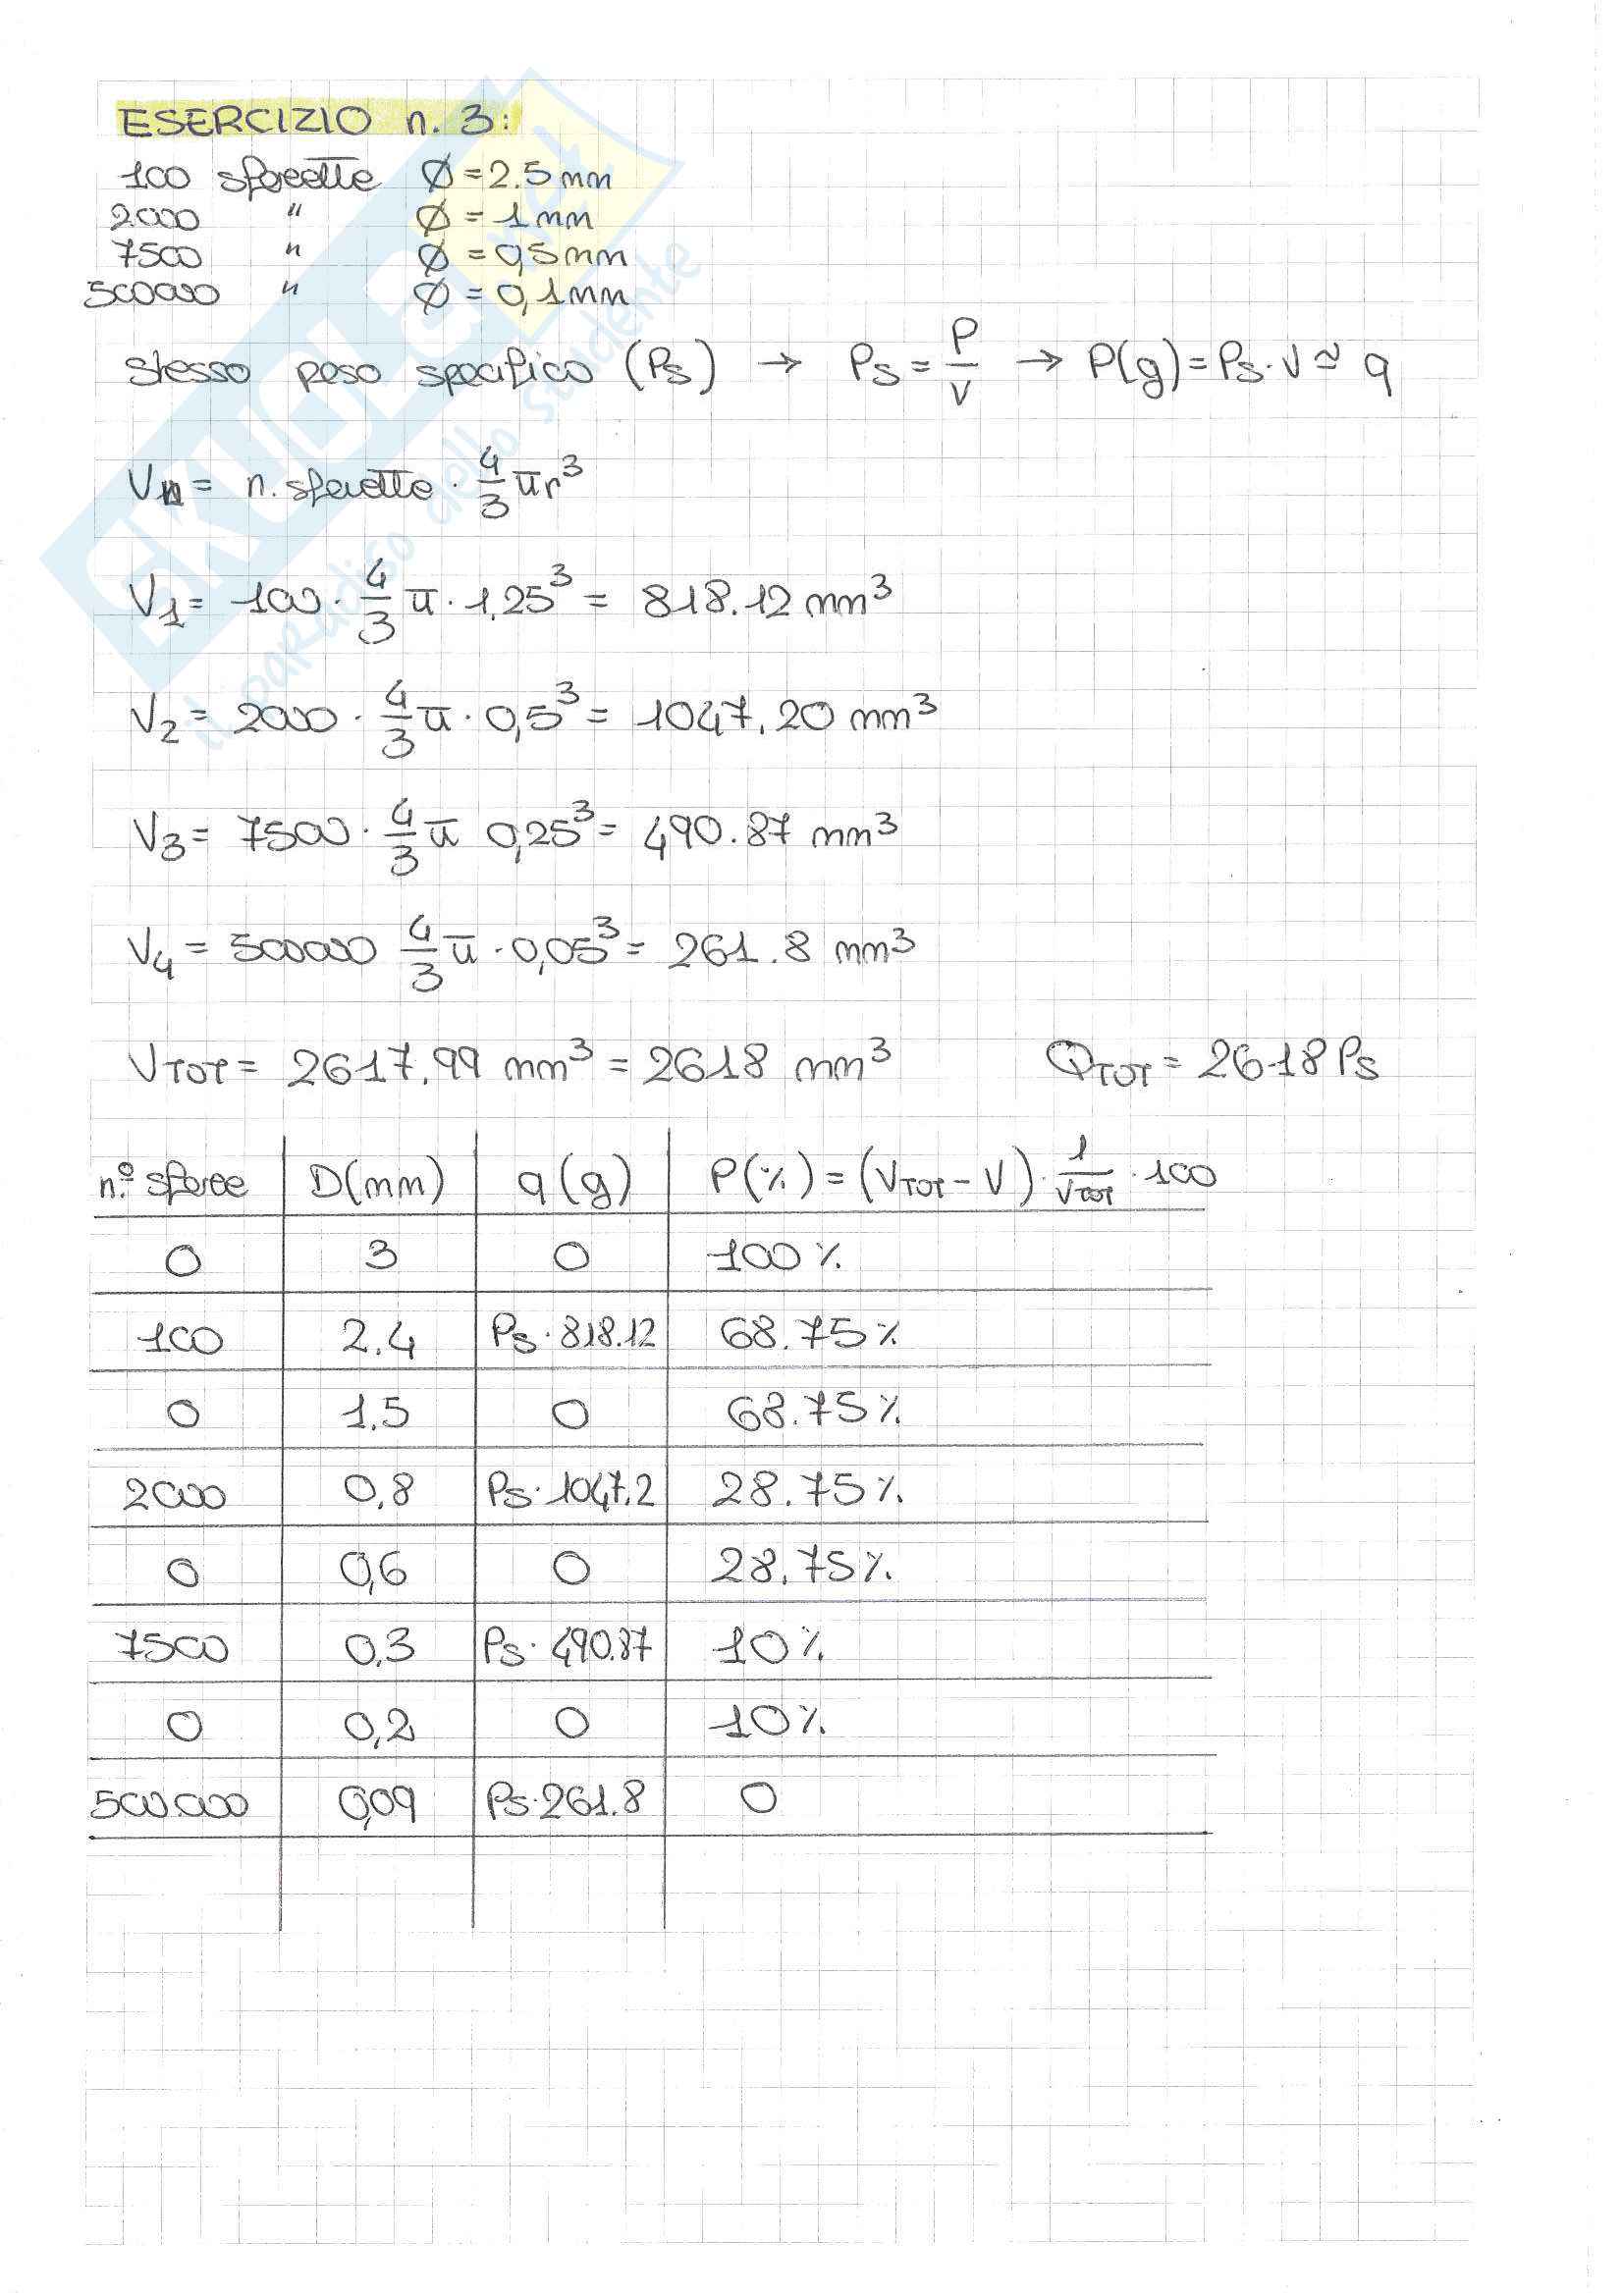 ESERCIZIO n. 3:
100 sferette Ø = 2.5 mm
2000 " Ø = 1 mm
7500 " Ø = 0,5 mm
500000 " Ø = 0,1 mm
stesso peso specifico (Ps) → Ps = P/V → P(g) = Ps · V ≃ q
Vn = n. sferette · 4/3 π r³
V1 = 100 · 4/3 π · 1,25³ = 818.12 mm³
V2 = 2000 · 4/3 π · 0,5³ = 1047.20 mm³
V3 = 7500 · 4/3 π 0,25³ = 490.87 mm³
V4 = 500000 4/3 π · 0,05³ = 261.8 mm³
VTOT = 2617.99 mm³ = 2618 mm³ QTOT = 2618 Ps
n.° sfere D(mm) q(g) P(%) = (VTOT - V) · 1/VTOT · 100
0 3 0 100%
100 2.4 Ps · 818.12 68.75%
0 1.5 0 68.75%
2000 0,8 Ps · 1047.2 28.75%
0 0,6 0 28.75%
7500 0,3 Ps · 490.87 10%
0 0,2 0 10%
500.000 0,09 Ps · 261.8 0
SKUOLA.net
il paradiso dello studente